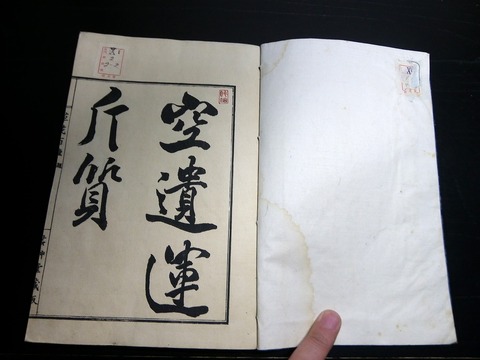 空遺運
斤質